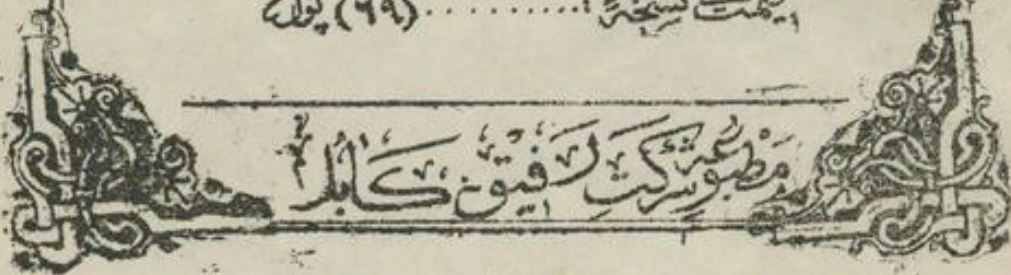 قیمت فی نسخه ......... (٦٩) پول
مطبوعهٔ شرکت رفیق کابل